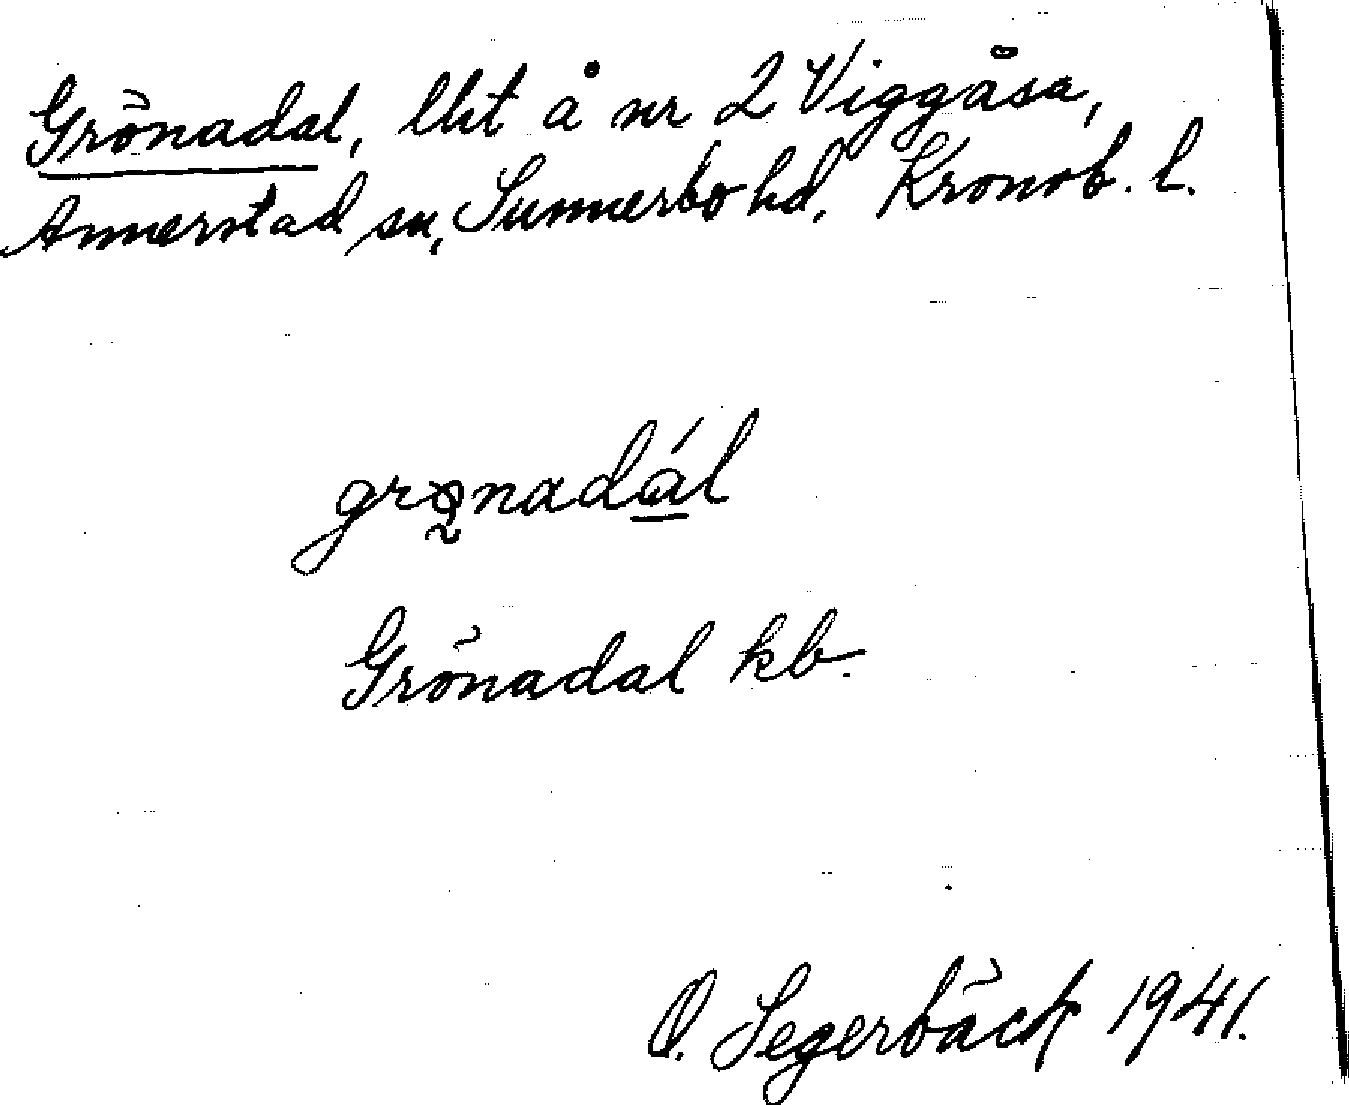 Grönadal, lht å nr 2 Viggåsa,
Annerstad sn, Sunnerbo hd, Kronob. l.
grø̰nadál
Grönadal kb.
O. Segerbäck 1941.